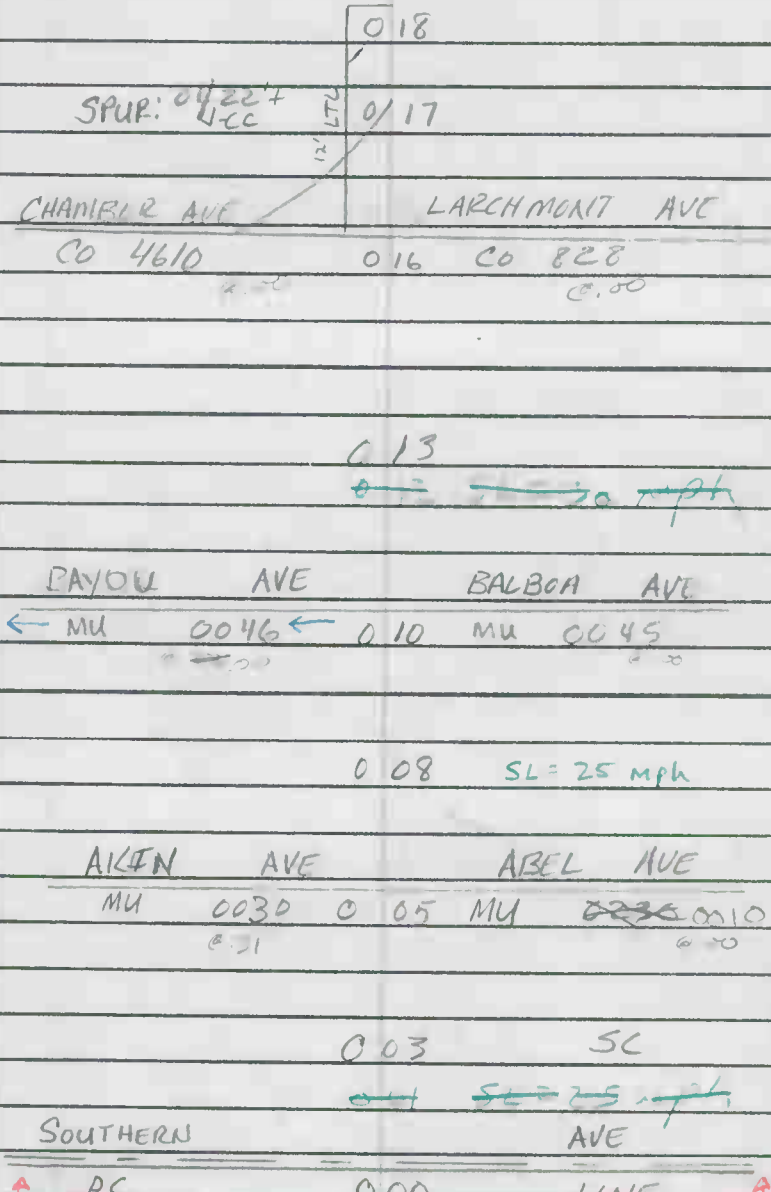 0 18
SPUR:
12' LTL 0/17
CHAMBLR AVE LARCHMONT AVE
CO 4610 0 16 CO 828
@.00
0 13
mph
BAYOU AVE BALBOA AVE
← MU 0046 ← 0 10 MU 0045
0 08 SL = 25 mph
AKIN AVE ABEL AVE
MU 0030 0 05 MU 0236 0010
@.31
0 03 SC
SL = 25 mph
SOUTHERN AVE
0.00 LINE